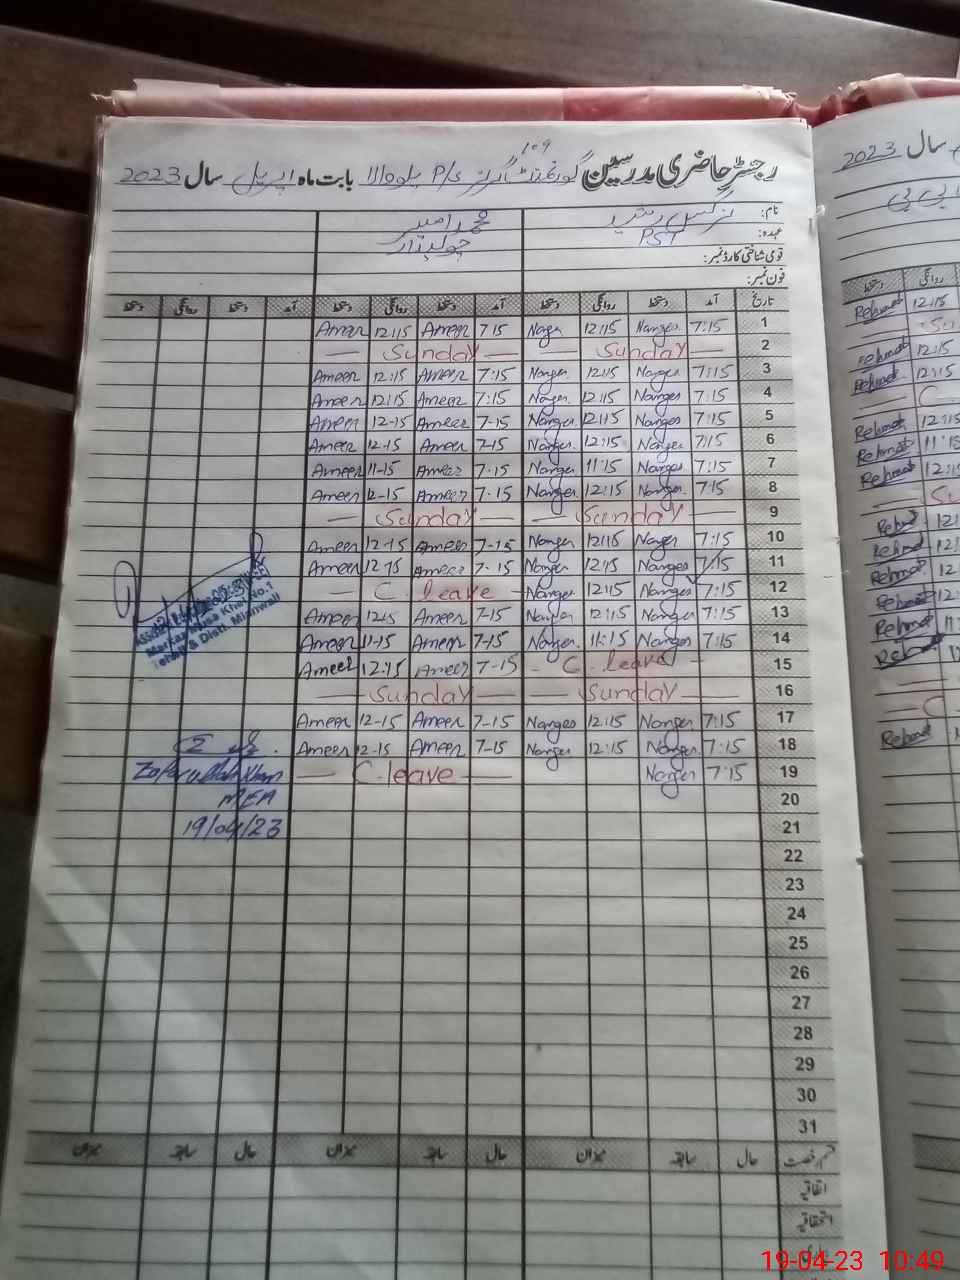 رجسٹر حاضری مدرسین گورنمنٹ گرلز P/s بابت ماہ اپریل سال 2023
109
نام: نرگس
محمد امیر
عہدہ: PST
چوکیدار
قومی شناختی کارڈ نمبر:
فون نمبر:
تاریخ آمد دستخط روانگی دستخط آمد دستخط روانگی دستخط آمد دستخط روانگی دستخط
1 7:15 Narges 12:15 Narges 7 15 Ameer 12:15 Ameer
2 Sunday Sunday
3 7:15 Narges 12:15 Narges 7:15 Ameer 12:15 Ameer
4 7:15 Narges 12:15 Narges 7:15 Ameer 12:15 Ameer
5 7:15 Narges 12:15 Narges 7-15 Ameer 12-15 Ameer
6 7:15 Narges 12:15 Narges 7-15 Ameer 12-15 Ameer
7 7:15 Narges 11:15 Narges 7-15 Ameer 11-15 Ameer
8 7:15 Narges 12:15 Narges 7-15 Ameer 12-15 Ameer
9 Sunday Sunday
10 7:15 Narges 12:15 Narges 7-15 Ameer 12-15 Ameer
11 7:15 Narges 12:15 Narges 7-15 Ameer 12-15 Ameer
12 7:15 Narges 12:15 Narges C. leave
13 7:15 Narges 12:15 Narges 7-15 Ameer 12-15 Ameer
14 7:15 Narges 11:15 Narges 7-15 Ameer 11-15 Ameer
15 C. leave 7-15 Ameer 12:15 Ameer
16 Sunday Sunday
17 7:15 Narges 12:15 Narges 7-15 Ameer 12-15 Ameer
18 7:15 Narges 12:15 Narges 7-15 Ameer 12-15 Ameer
19 7:15 Narges C. leave
20
21
22
23
24
25
26
27
28
29
30
31
Markaz Musa Khel No.1
Tehsil & Distt. Mianwali
Zafarullah Khan
MEA
19/04/23
قسم رخصت حال سابقہ میزان حال سابقہ میزان حال سابقہ میزان
اتفاقیہ
استحقاقیہ
سال 2023
روانگی دستخط
12:15 Rehmat
12:15 Rehmat
12:15 Rehmat
Rehmat
Rehmat
Rehmat
Rehmat
Rehmat
Rehmat
Rehmat
Rehmat
19-04-23 10:49